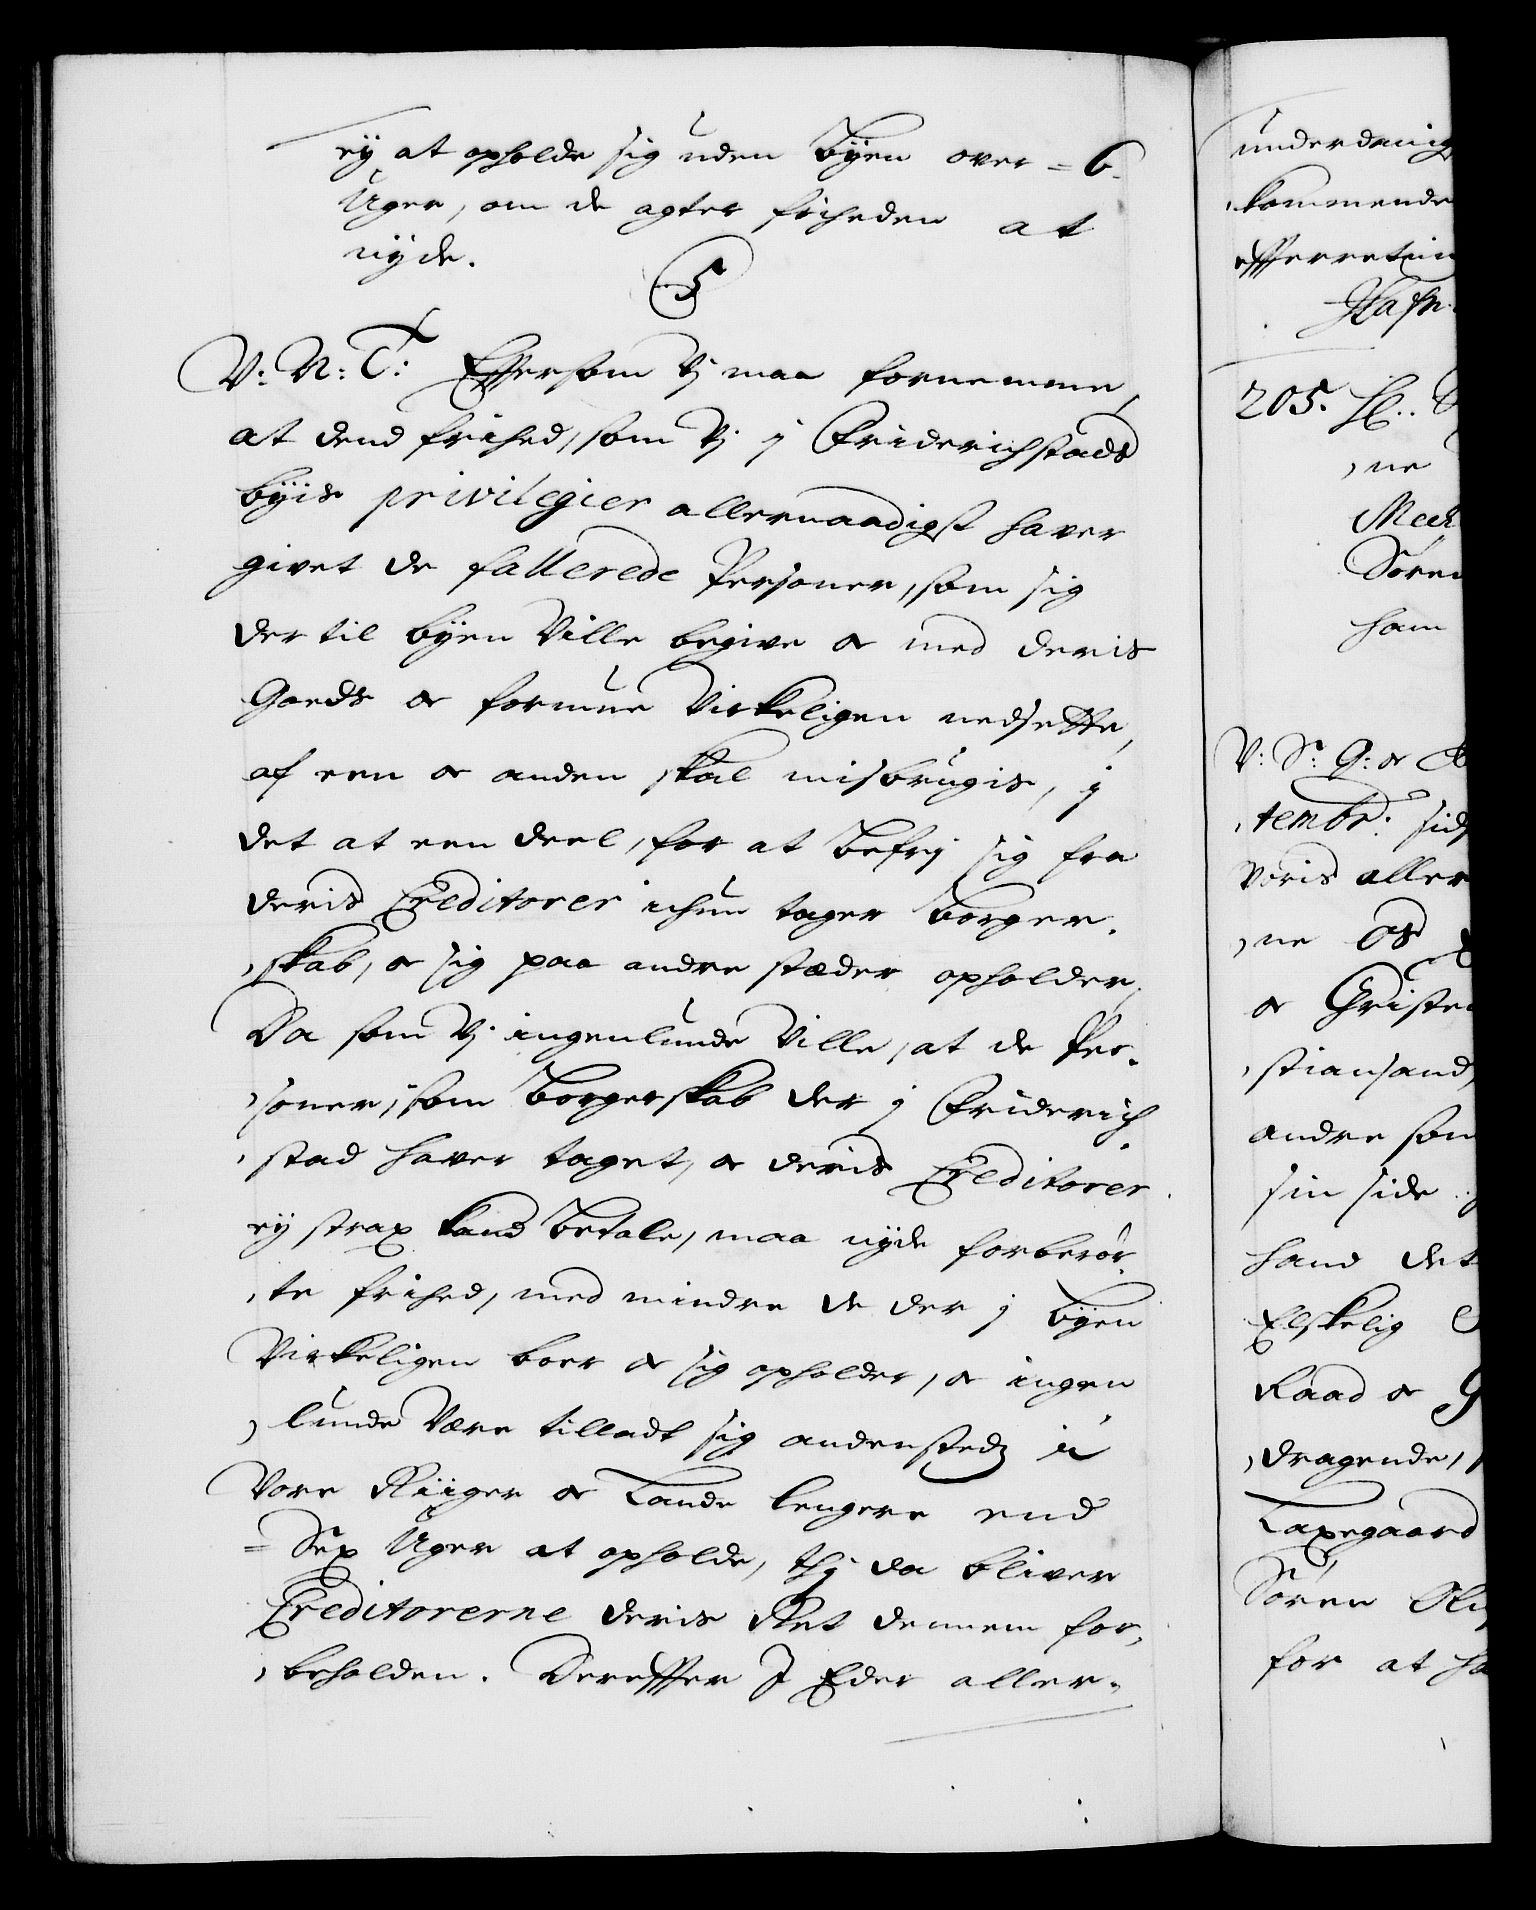 ey at opholde sig uden Byen over = 6.
Uger, om de agter friheden at
nyde.
5
V: N: T: Effersom Vj maa fornemme,
at dend frihed, som Vj j Friderichstads
byis privilegier allernaadigst haver
givet de fallerede Personer, som sig
der til byen Ville begive oc med deris
Goeds oc formue Virkeligen nedsette,
af een oc anden skal misbrugis, j
det at een deel, for at befrj sig fra
deris Creditorer ichun tager Borger,
,skab, oc sig paa andre stæder opholder,
Da som Vj ingenlunde Ville, at de Per,
,soner, som Borgerskab der j Friderich
,stad haver taget, oc deris Creditorer
ey strax kand betale, maa nyde forberör,
,te frihed, med mindre de der j Byen
Virkeligen boer oc sig opholder, oc ingen
,lunde Være tilladt sig andensteds i
Vore Riiger oc Lande lengere end
= Sex Uger at opholde, thj da bliver
Creditorerne deris Ret dennem for,
,beholden. Dereffter J Eder aller,
underdanig
,kommende
effterretnin
Hafn.
205. Hr. S
,ne
Meck
Sören
ham
V: Sr. G: oc
,tembr: sids
Voris aller
,ne Os
oc Christe
,stiansand,
andre som
sin side
hand det
Elskelig
Raad oc G
,dragende,
Laxegaard
Sören Ol
for at ha